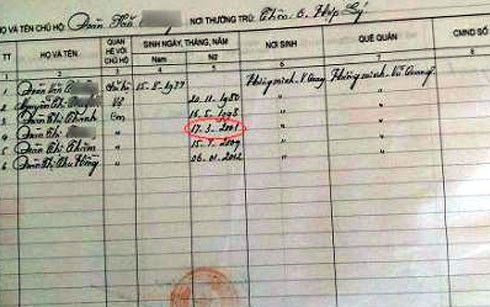 HỌ VÀ TÊN CHỦ HỘ: Đoàn Văn NƠI THƯỜNG TRÚ: Thôn 6. Hợp Lý
TT HỌ VÀ TÊN QUAN HỆ VỚI CHỦ HỘ SINH NGÀY, THÁNG, NĂM Nam Nữ NƠI SINH QUÊ QUÁN CMND SỐ
1 2 3 4 5 6 7 8
1 Đoàn Văn Chủ hộ 15.8.1977 Hương Minh. V. Quang Hương Minh. Vũ Quang
2 Nguyễn Thị Vợ 20.11.1980 " "
3 Đoàn Thị Con 16.5.1998 " "
4 Đoàn Thị " 17.3.2001 " "
5 Đoàn Thị " 15.7.2009 " "
6 Đoàn Thị Thu " 06.01.2012 " "